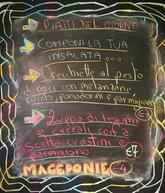 PIATTI DEL GIORNO
COMPONI LA TUA
INSALATA ...
Orecchiette al pesto
di noci con melanzane
pomodorini e parmigiano
Zuppa di legumi
e cereali con
scelta crostini e
parmigiano
€7
MACEDONIE €4